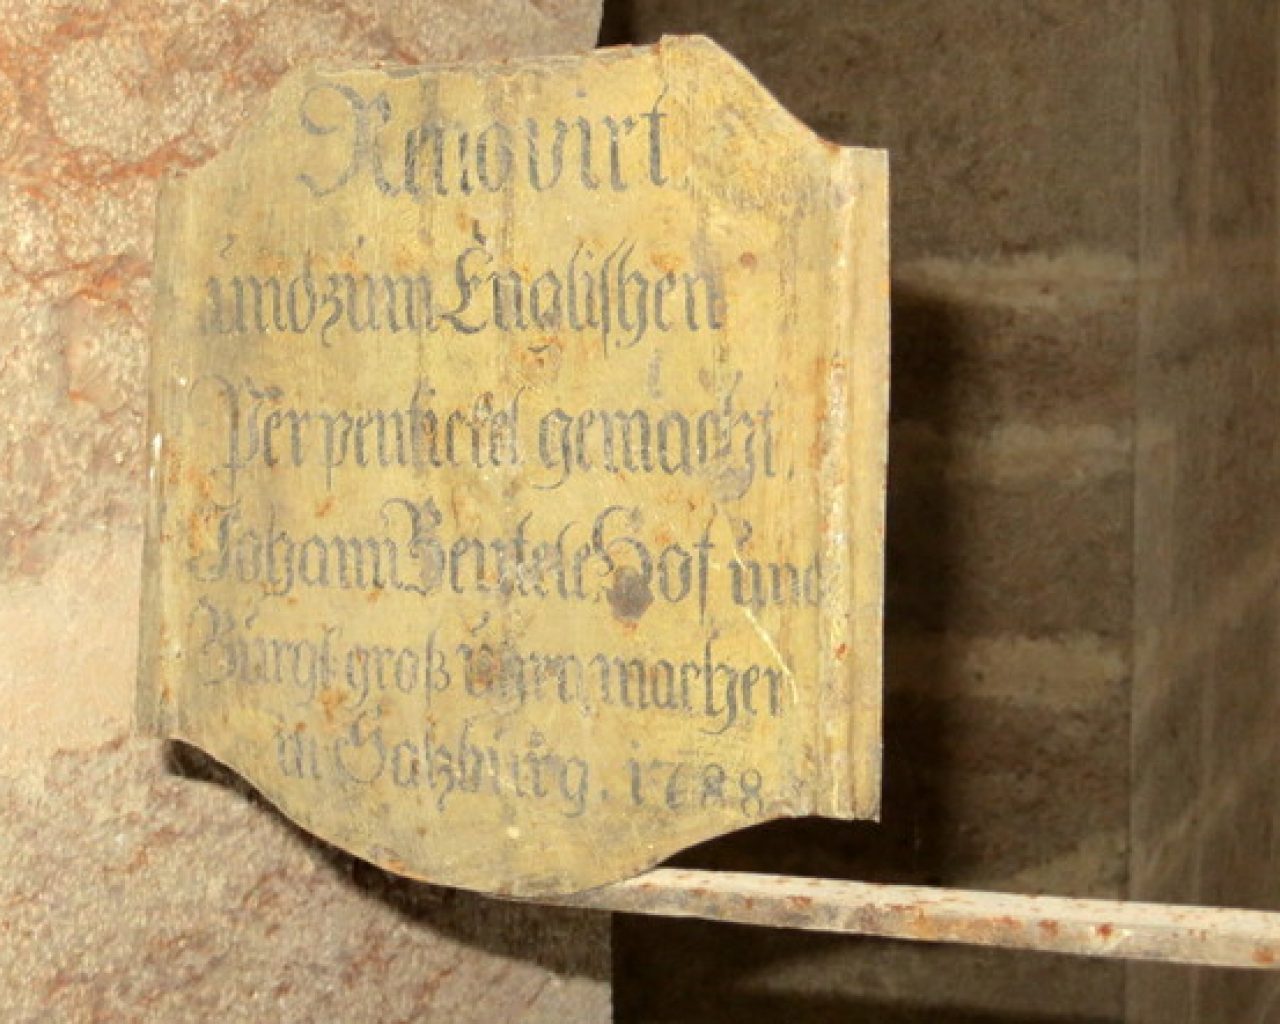 Renovirt
und zum Englischen
Perpentickel gemacht.
Johann Bentele Hof und
Burgl groß uhrn macher
in Salzburg. 1788